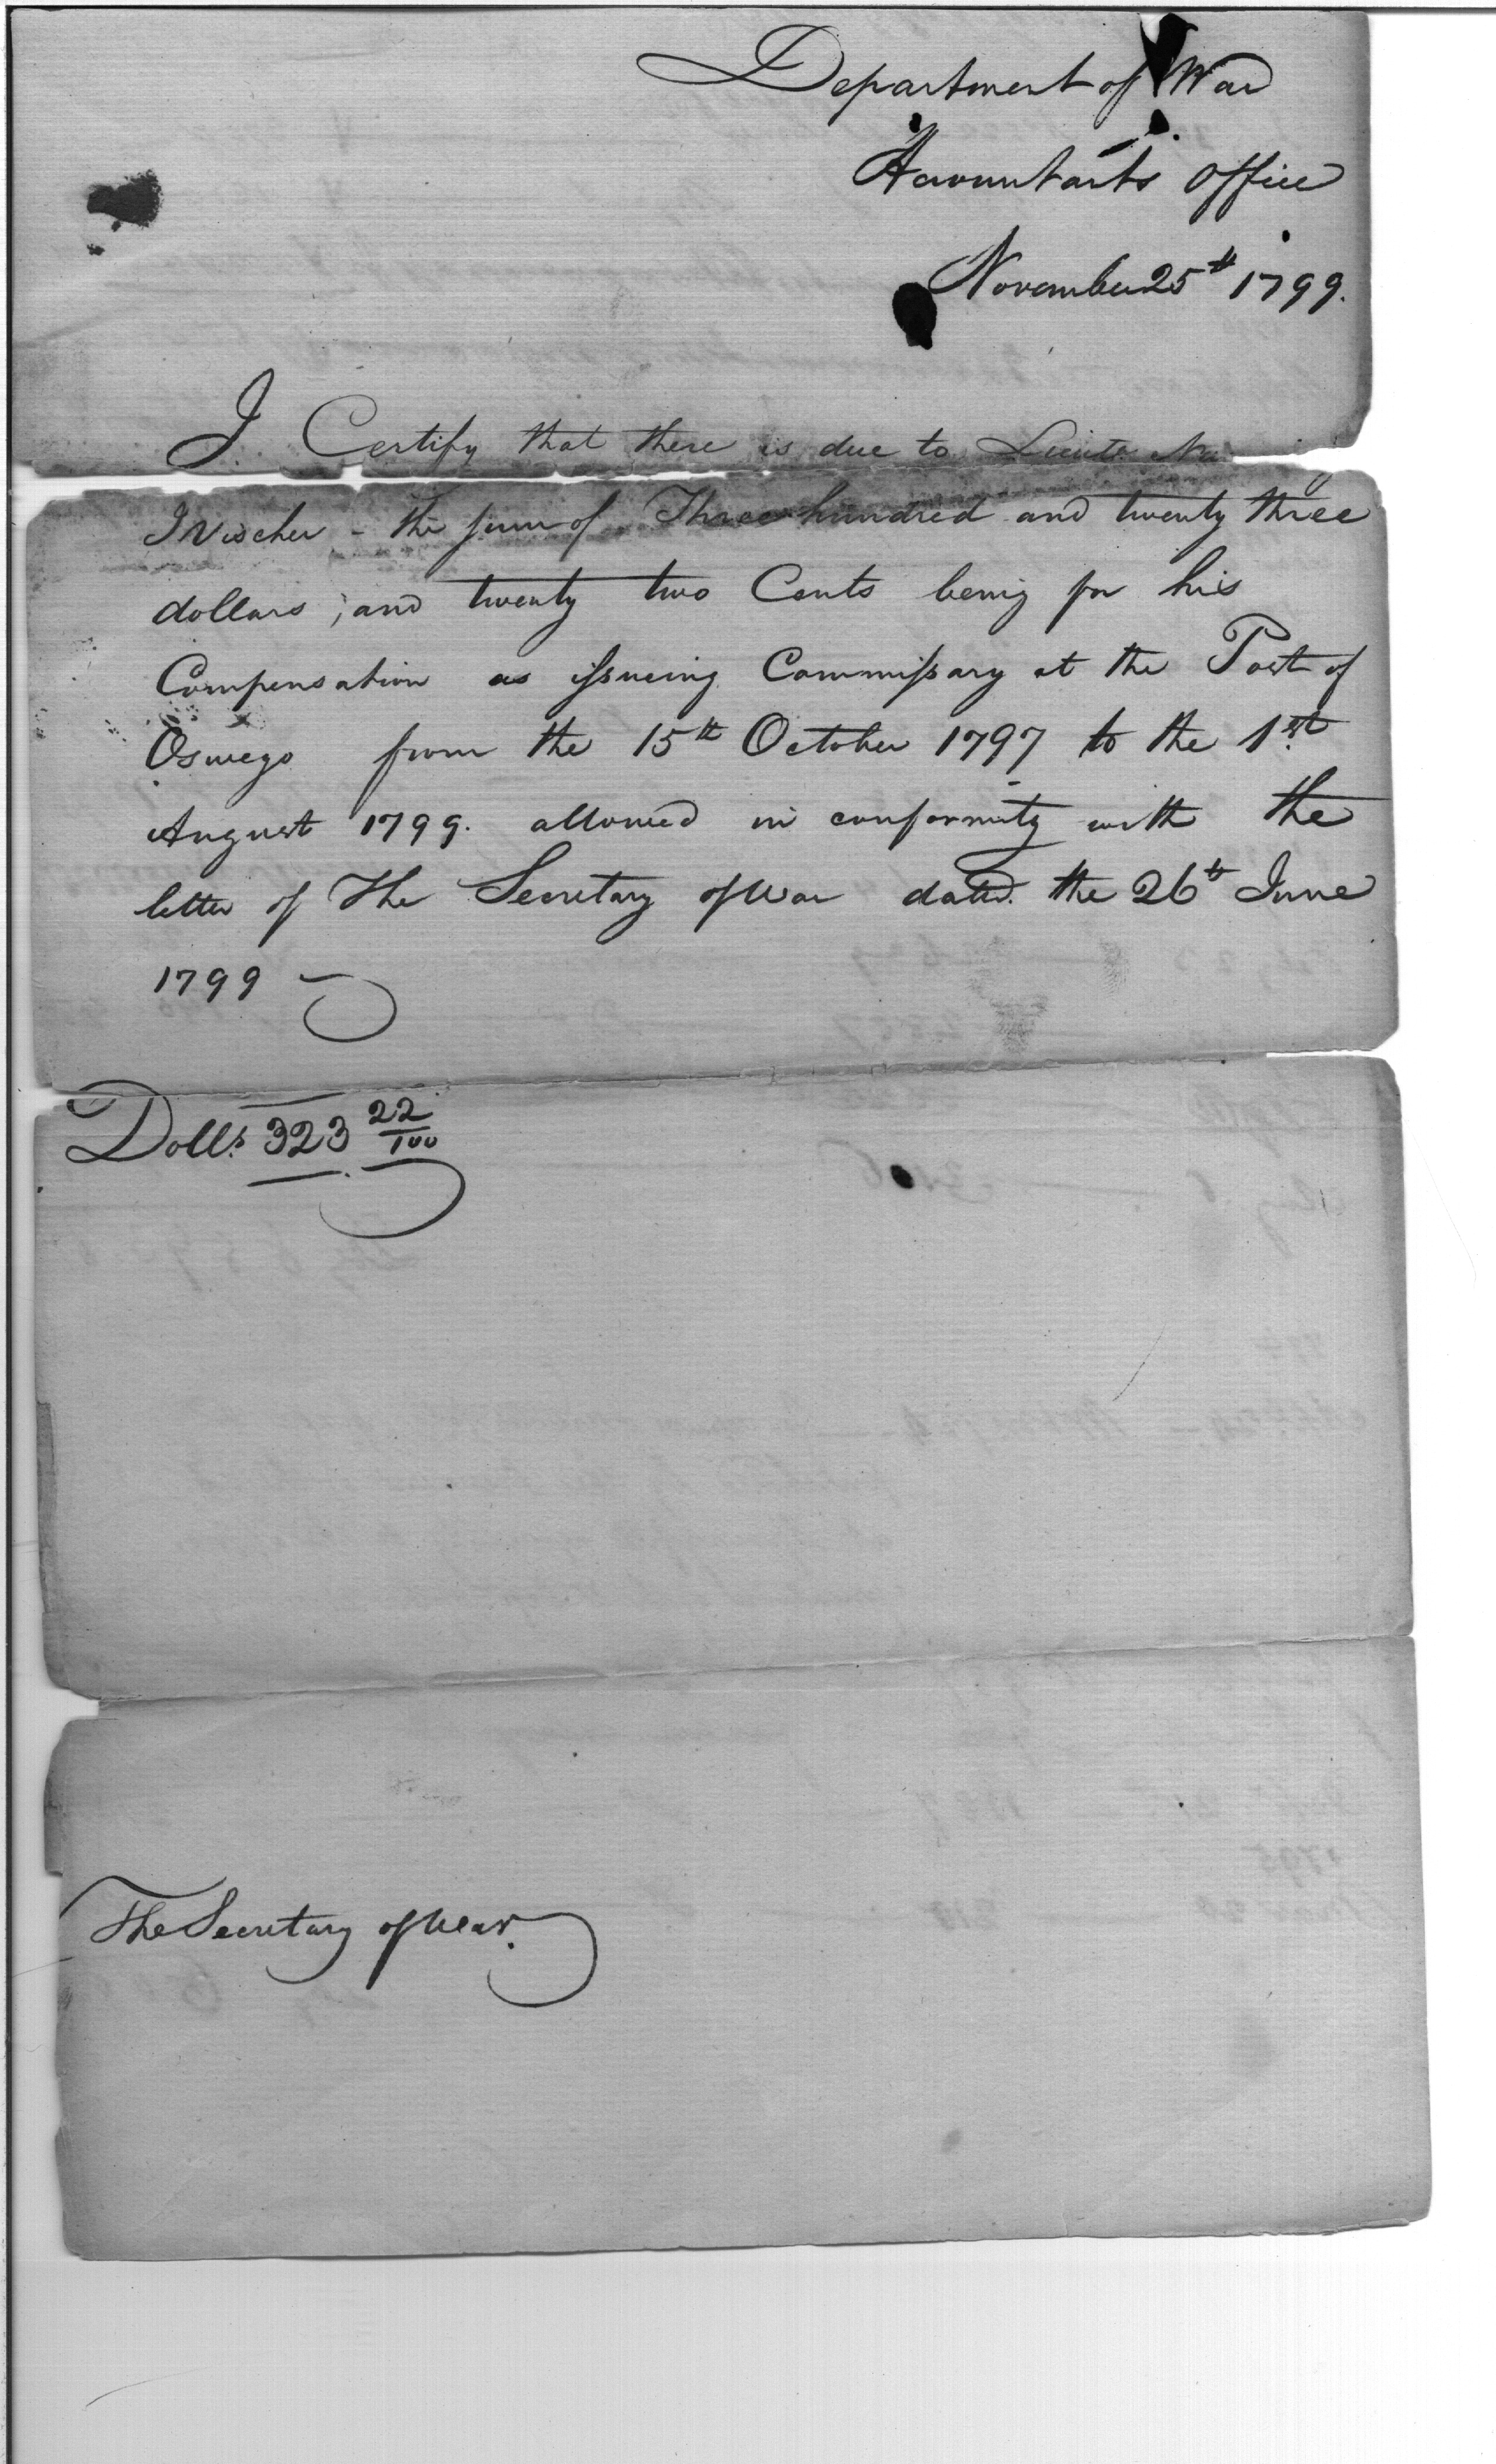 Department of War
Accountants Office
November 25th 1799.
I Certify that there is due to Lieut.
I Visscher - the sum of Three hundred and twenty three
dollars, and twenty two Cents being for his
Compensation as issuing Commissary at the Post of
Oswego from the 15th October 1797 to the 1st
August 1799. allowed in conformity with the
letter of The Secretary of War dated the 26th June
1799
Dolls. 323 22/100
The Secretary of War.